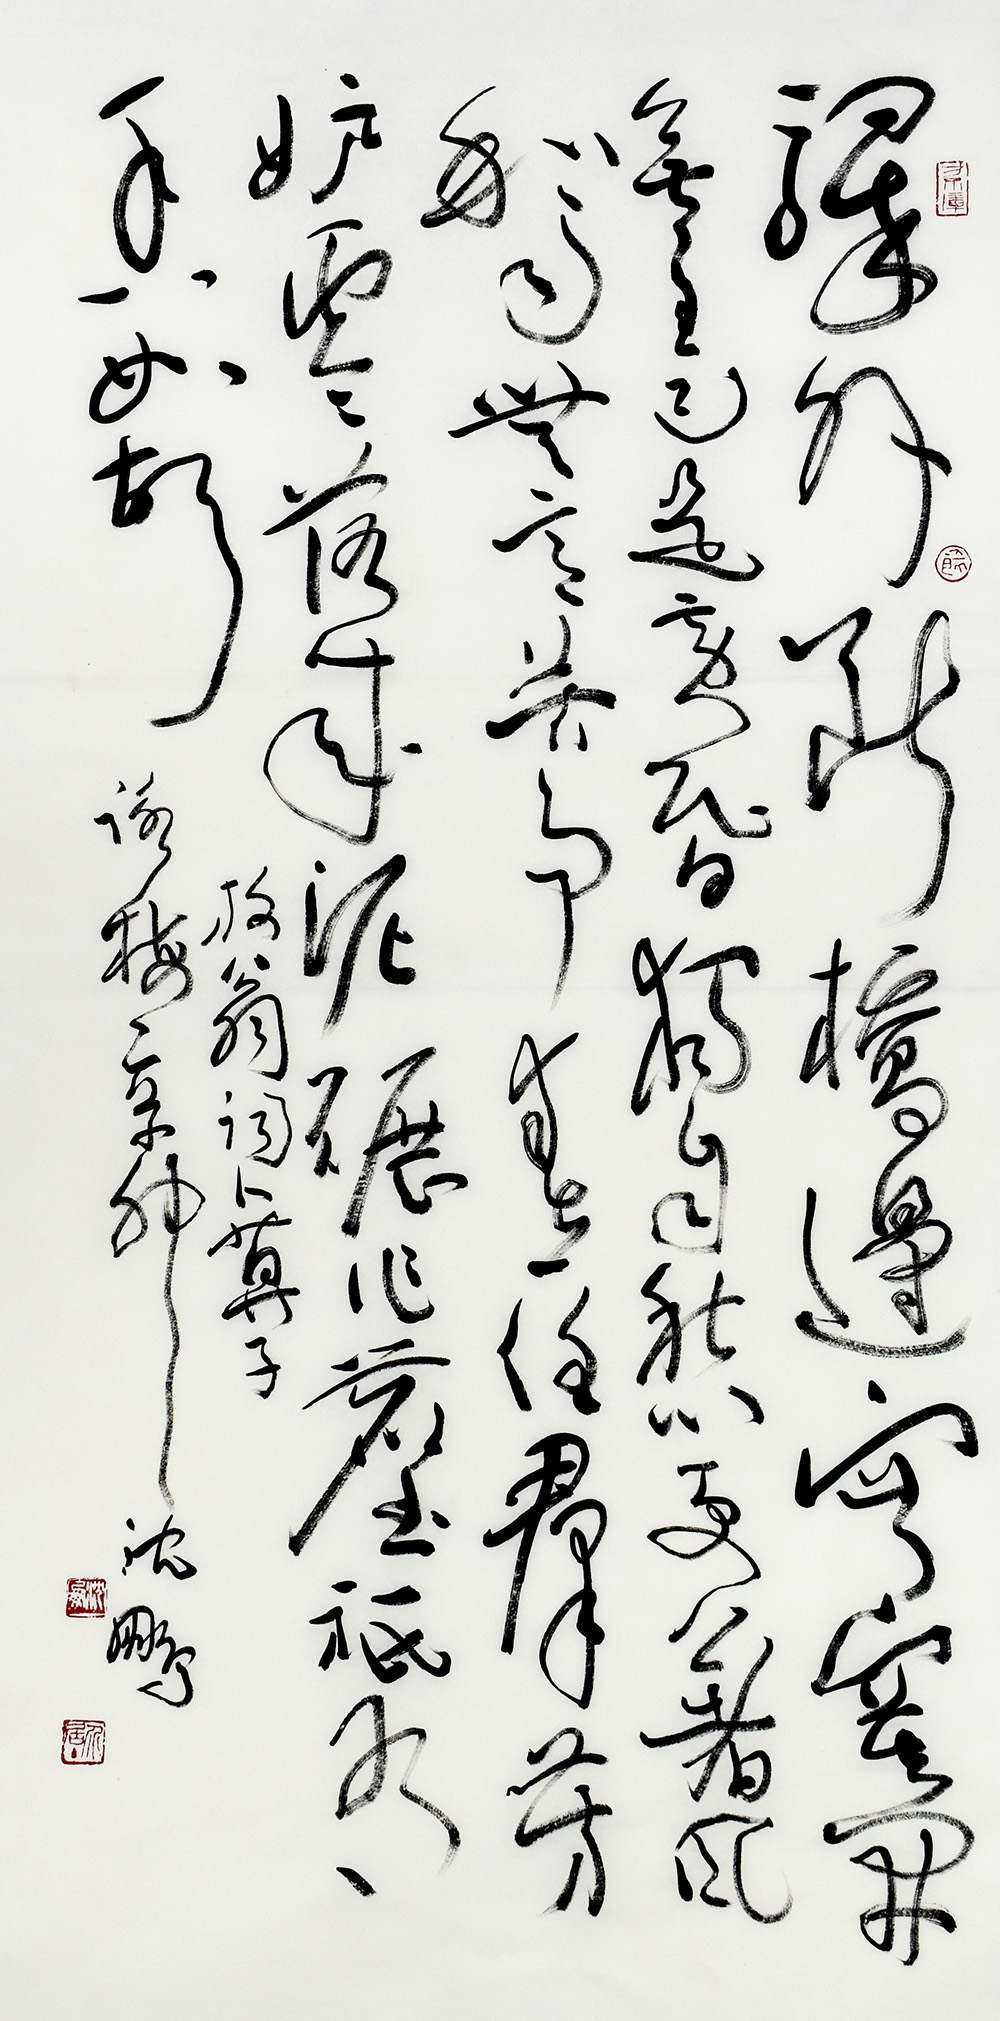 驛外斷橋邊寂寞開
無主已是黃昏獨自愁更著風
和雨無意苦爭春一任群芳
妒零落成泥碾作塵祇有
香如故
放翁詞卜算子
詠梅辛卯沈鵬